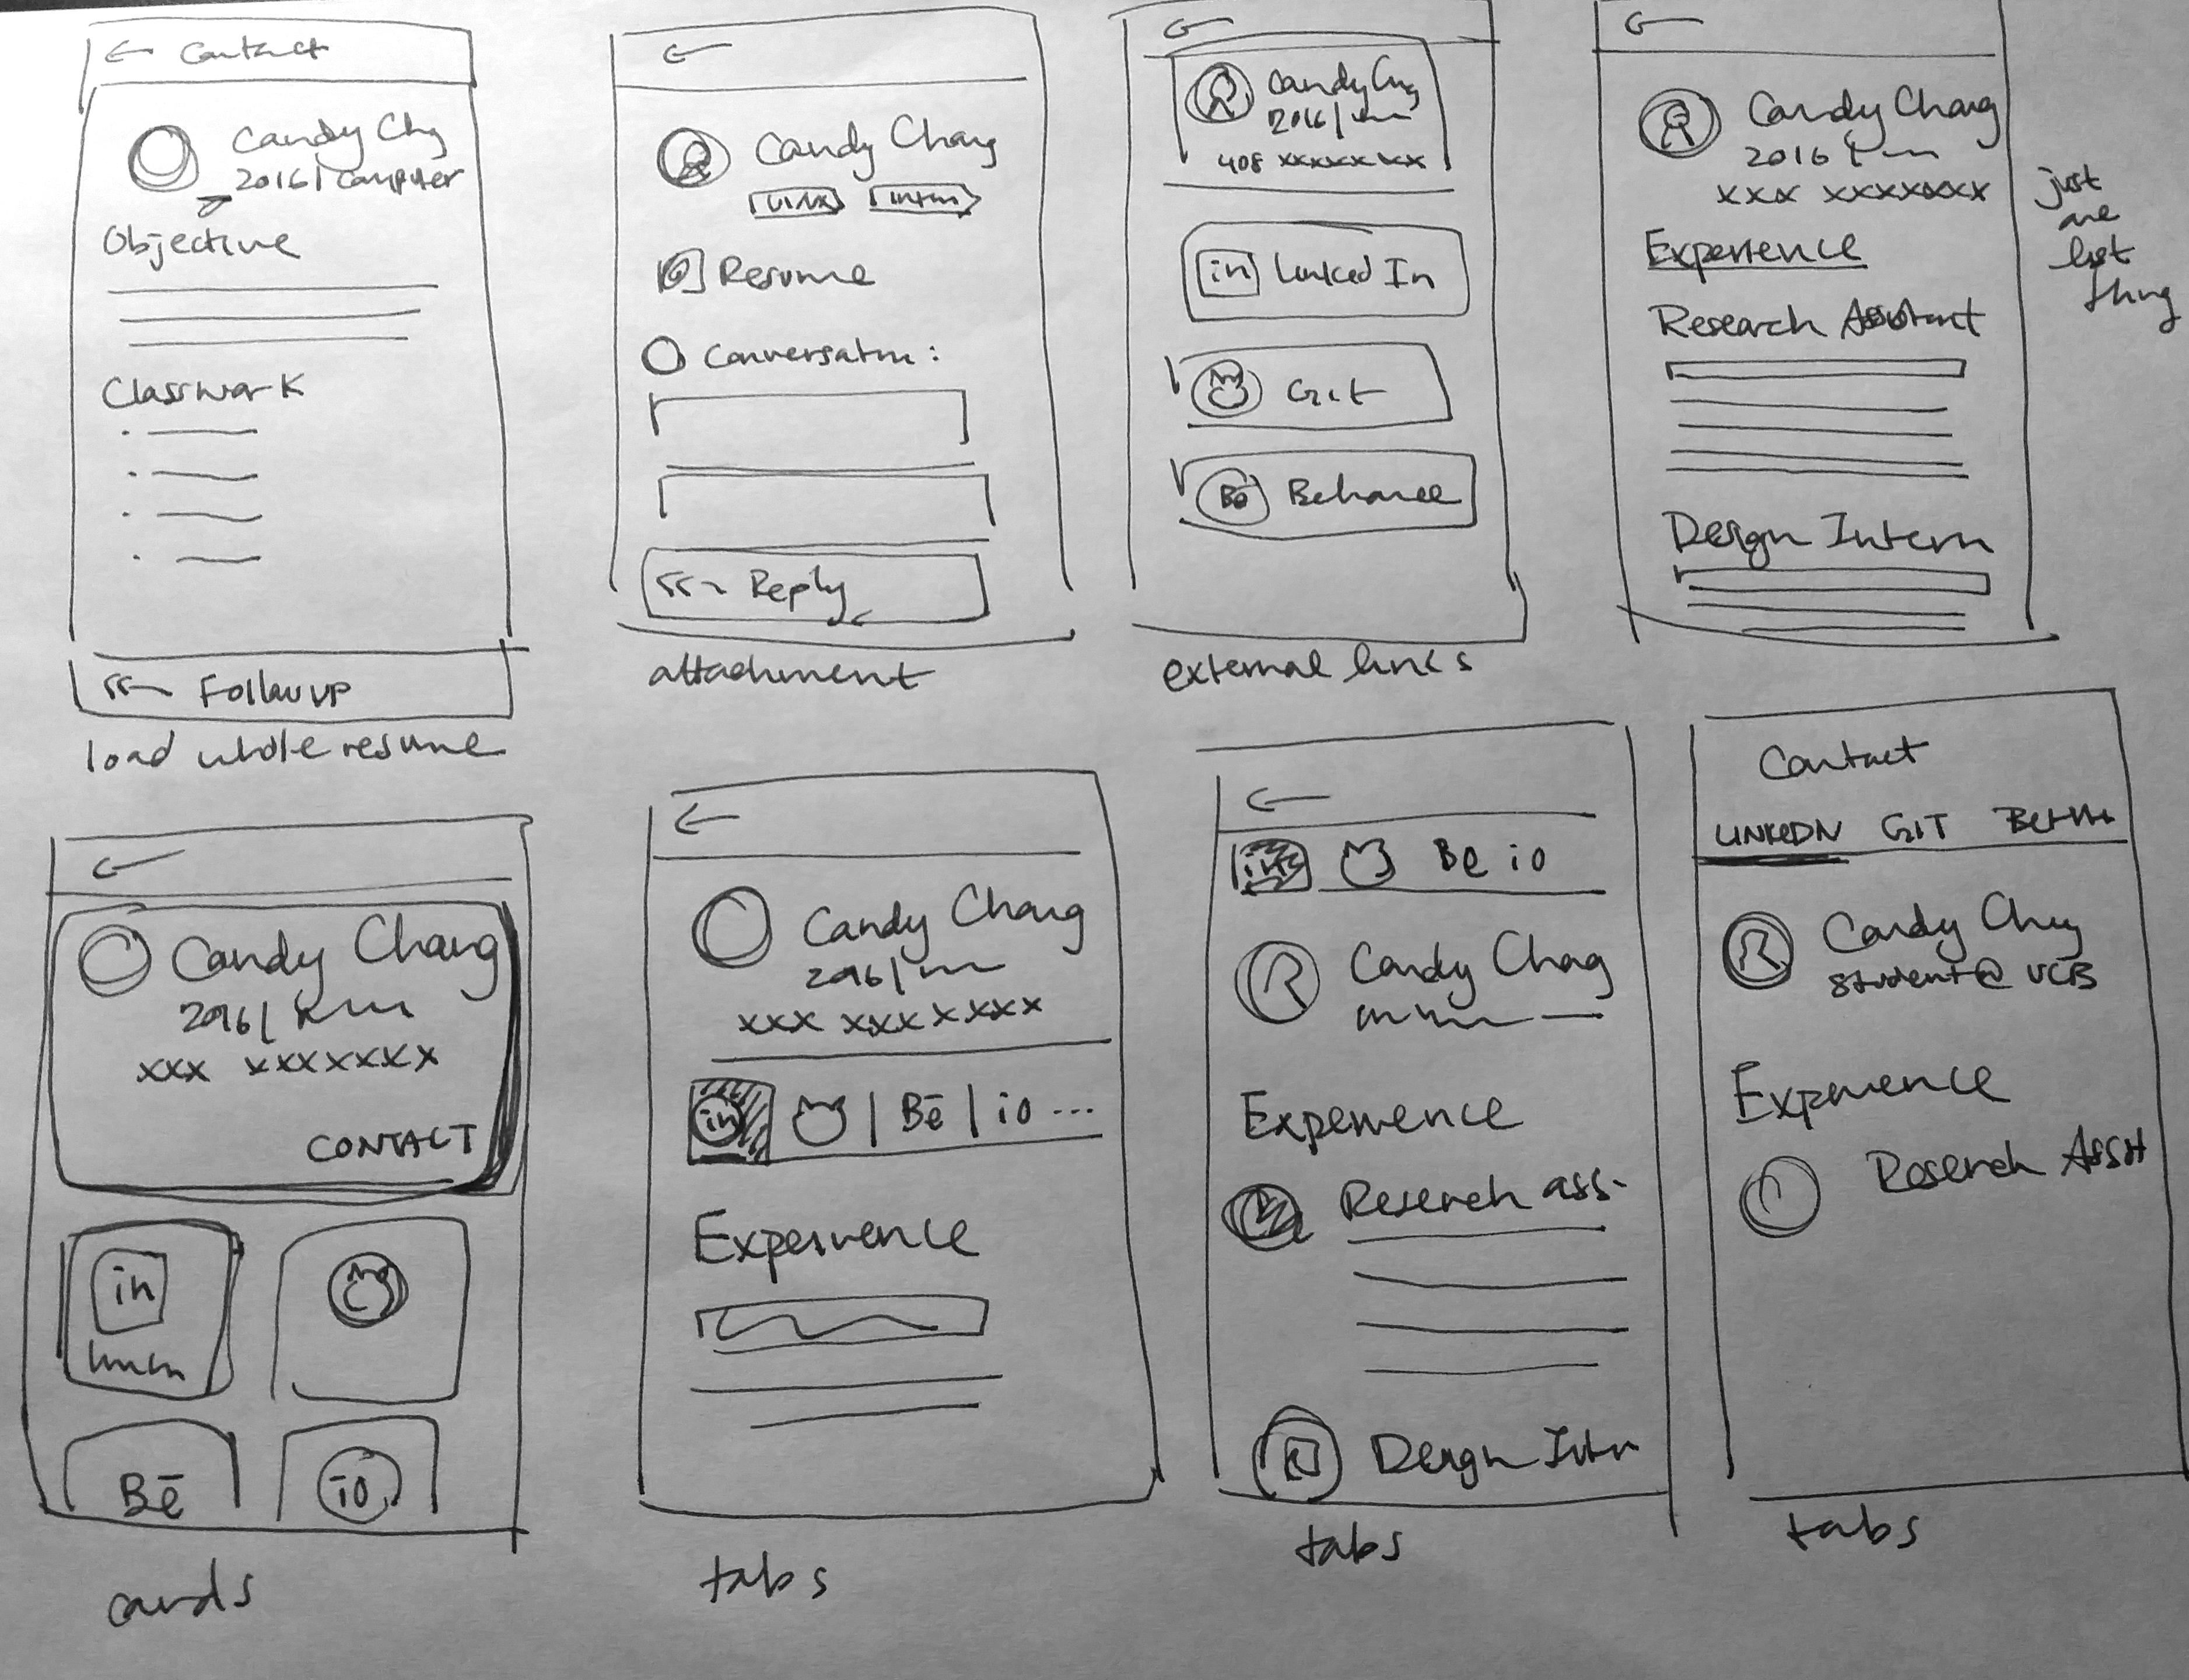 ← Contact
Candy Chg
2016 | Computer
Objective
Classwork
Follow up
load whole resume
←
Candy Chang
UI/UX
Resume
Conversation :
Reply
attachment
←
Candy
2016 |
408 xxxxxx xx
in Linked In
Git
Bē Behance
external links
←
Candy Chang
2016
xxx xxxxxxx
Experience
Research Assistant
Design Intern
just
one
list
thing
←
Candy Chang
2016 |
xxx xxxxxxx
CONTACT
in
Bē
io
cards
←
Candy Chang
2016 |
xxx xxxxxxx
in | Bē | io ...
Experience
tabs
←
in Be io
Candy Chag
Experience
Research ass.
Design Intrn
tabs
Contact
LINKEDN GIT
Candy Chg
student @ UCB
Experience
Research Asst
tabs